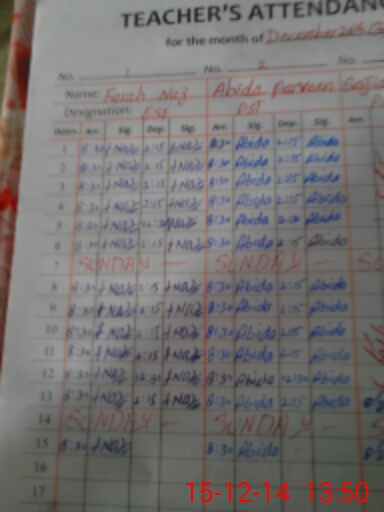 TEACHER'S ATTENDAN
for the month of December 2014 G
No. 1 No. 2 No.
Name: Farah Naz Abida Parveen
Designation: ESE PST
Dates Arr. Sig. Dep. Sig. Arr. Sig. Dep. Sig. Arr.
1 8:30 f Naz 2:15 f Naz 8:30 Abida 2:15 Abida
2 8:30 f Naz 2:15 f Naz 8:30 Abida 2:15 Abida
3 8:30 f Naz 2:15 f Naz 8:30 Abida 2:15 Abida
4 8:30 f Naz 2:15 f Naz 8:30 Abida 2:15 Abida
5 8:30 f Naz 12:30 f Naz 8:30 Abida Abida
6 8:30 f Naz 2:15 f Naz 8:30 Abida 2:15 Abida
7 SUNDAY — SUNDAY — SU
8 8:30 f Naz 2:15 f Naz 8:30 Abida 2:15 Abida
9 8:30 f Naz 2:15 f Naz 8:30 Abida 2:15 Abida
10 8:30 f Naz 2:15 f Naz 8:30 Abida 2:15 Abida
11 8:30 f Naz 2:15 f Naz 8:30 Abida 2:15 Abida
12 8:30 f Naz 12:30 f Naz 8:30 Abida 12:30 Abida
13 8:30 f Naz 2:15 f Naz 8:30 Abida 2:15 Abida
14 SUNDAY — SUNDAY — S
15 8:30 f Naz 8:30 Abida
16
17
15-12-14 13:50